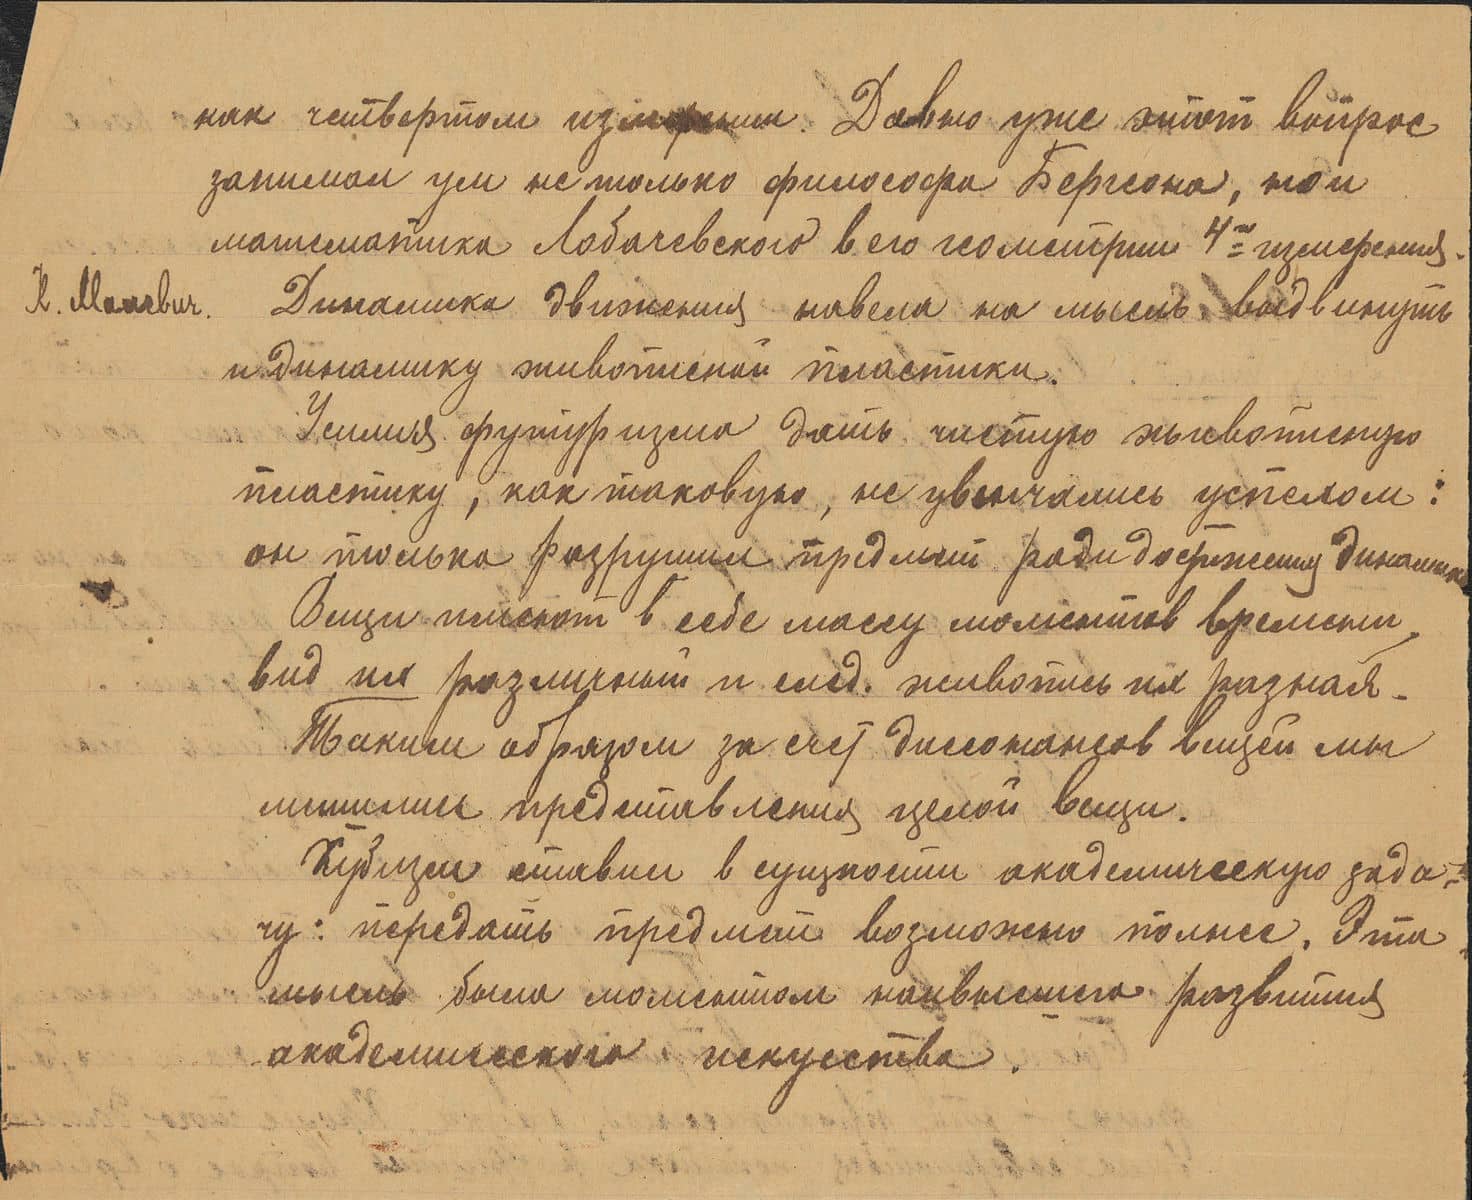 как четвертом измерении. Давно уже этот вопрос
занимал ум не только философа Бергсона, но и
математика Лобачевского в его геометрии 4го измерения.
К. Малевич.
Динамика движения навела на мысль выдвинуть
и динамику живописной пластики.
Усилия футуризма дать чистую живописную
пластику, как таковую, не увенчались успехом:
он только разрушил предмет ради достижения динамики
Вещи имеют в себе массу моментов времени,
вид их различный и след. живопись их разная.
Таким образом за счет диссонансов вещей мы
лишились представления целой вещи.
Кубизм ставил в сущности академическую зада-
чу: передать предмет возможно полнее. Эта
мысль была моментом наивысшего развития
академического искусства.